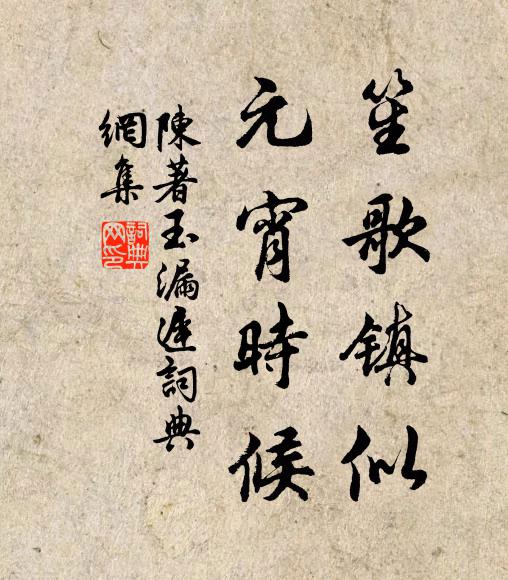 笙歌镇似
元宵時候
陳著玉漏遲詞典
網集
詞典
网印